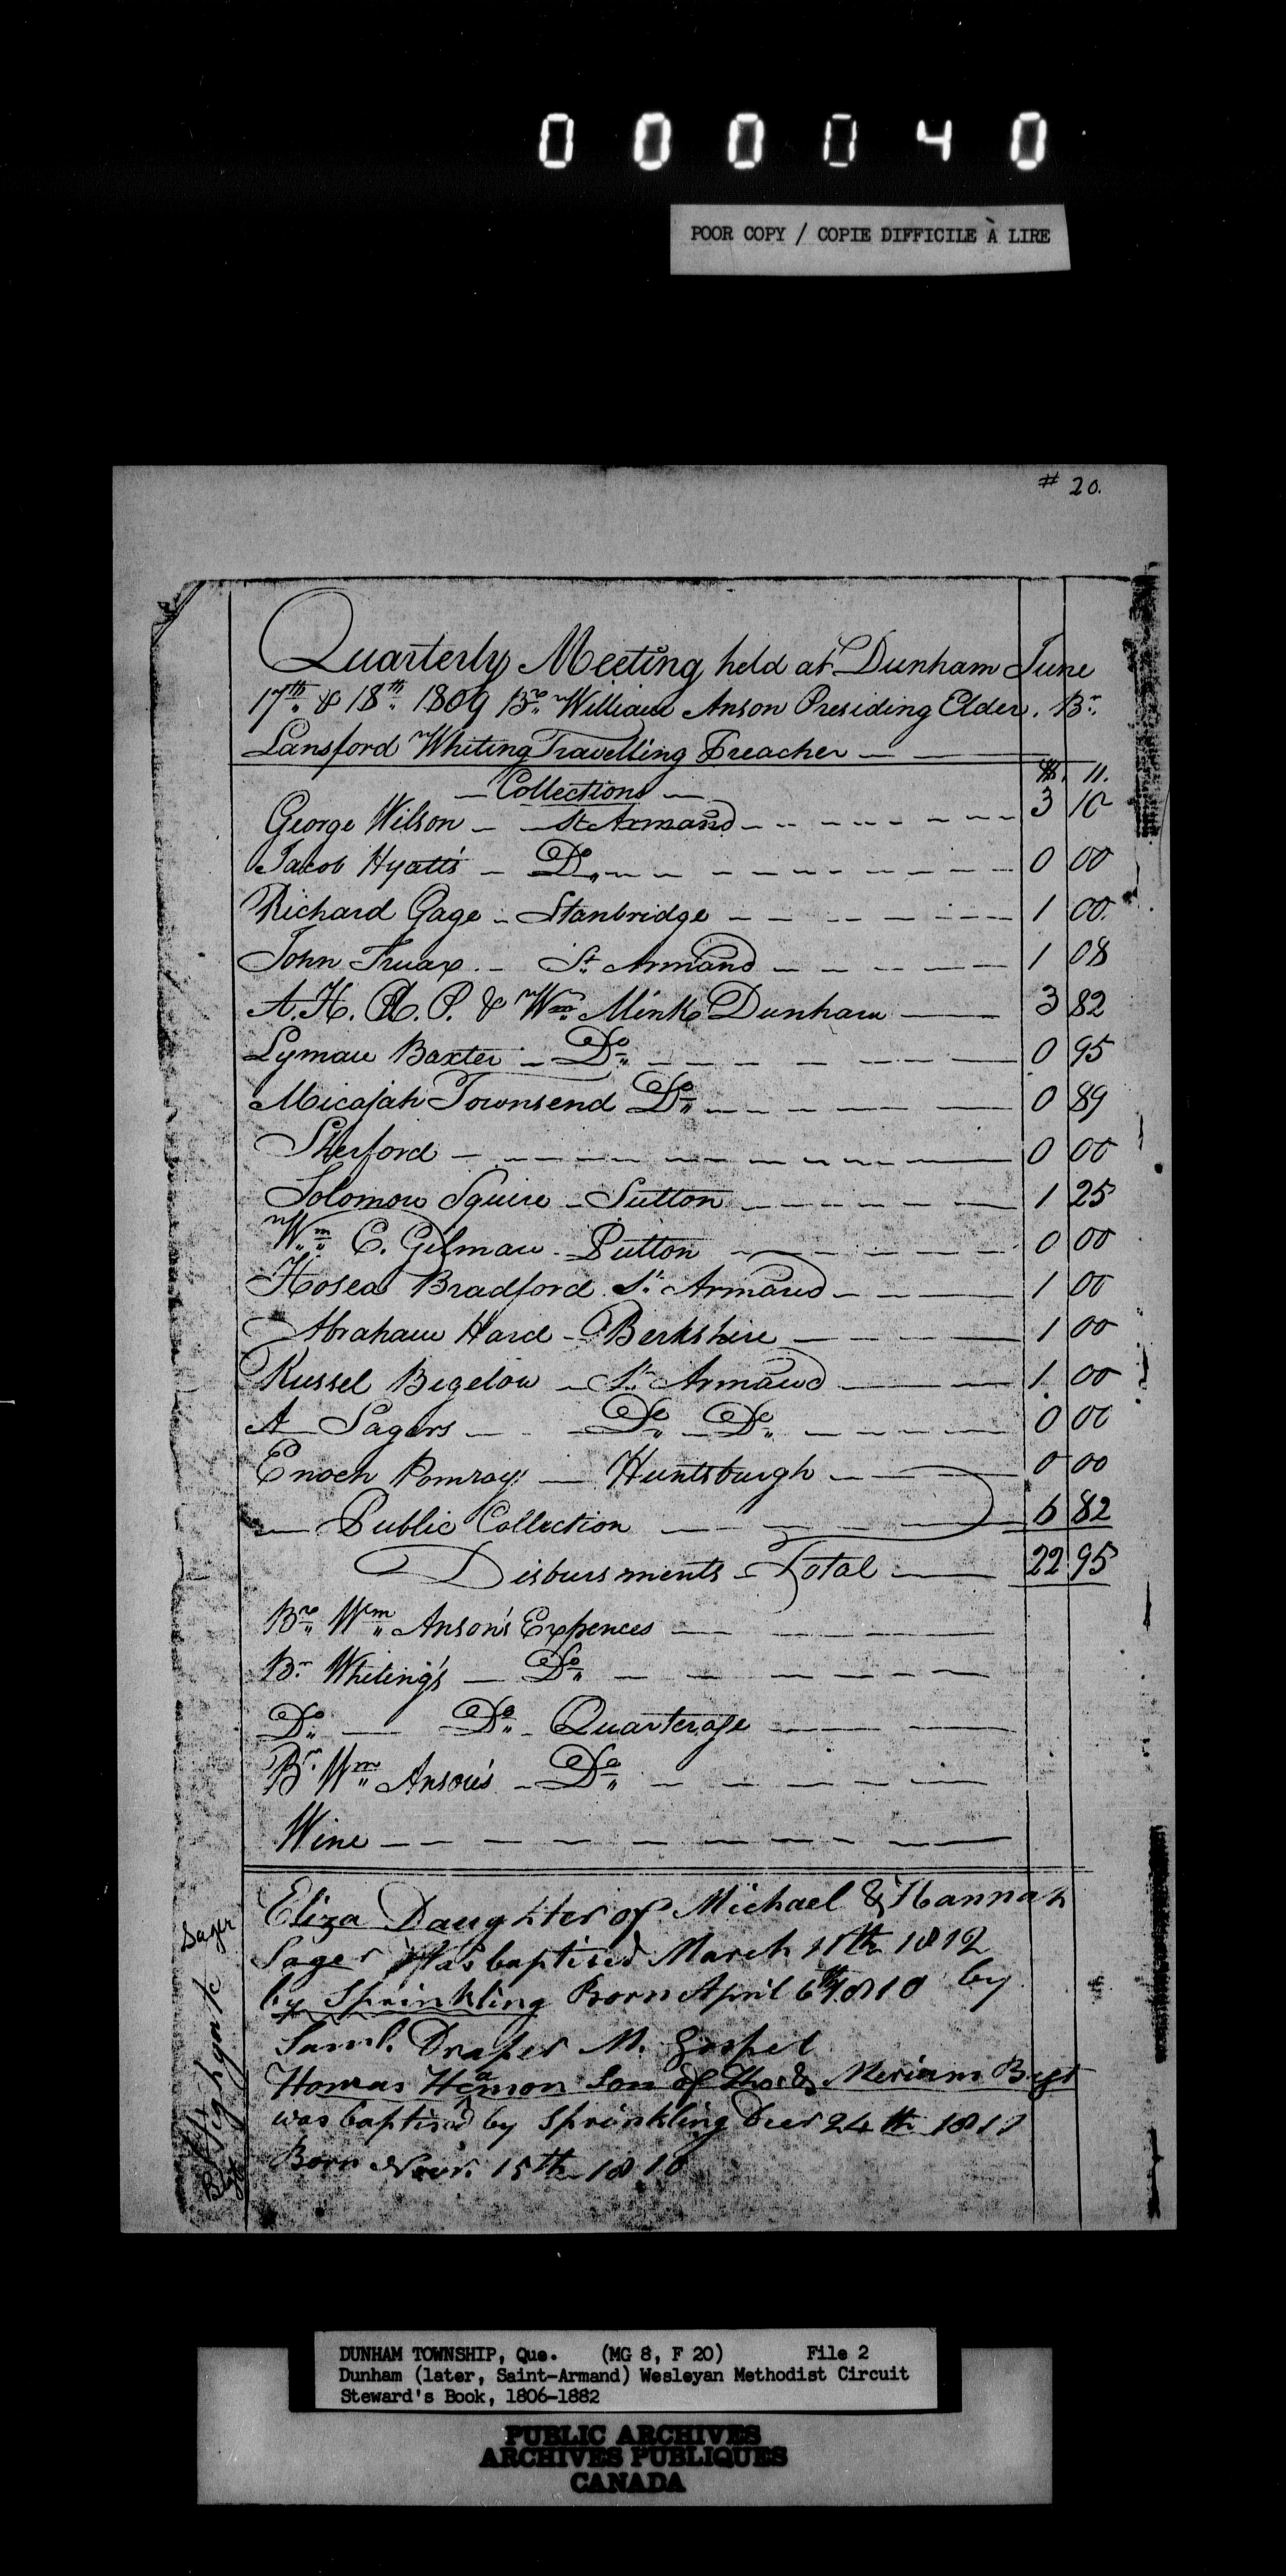 000040
POOR COPY / COPIE DIFFICILE À LIRE
# 20.
Quarterly Meeting held at Dunham June
17th & 18th 1809 Bro William Anson Presiding Elder. Br.
Lansford Whiting Travelling Preacher
Collections
George Wilson St Armand 3 10
Jacob Hyatt's Do 0 00
Richard Gage Stanbridge 1 00
John Truax St Armand 1 08
A. H. P. & Wm Mink Dunham 3 82
Lyman Baxter Do 0 95
Micajah Townsend Do 0 89
Sheford 0 00
Solomon Squire Sutton 1 25
Wm C. Gilman Putton 0 00
Hosea Bradford St Armand 1 00
Abraham Hard Berkshire 1 00
Russel Bigelow St Armand 1 00
A Sagers Do Do 0 00
Enoch Pomroy Huntsburgh 0 00
Public Collection 6 82
Disbursments Total 22 95
Bro Wm Anson's Expences
Br Whiting's Do
Do Do Quarterage
Br Wm Anson's Do
Wine
Eliza Daughter of Michael & Hannah
Sager Was baptised March 11th 1812
by Sprinkling Born April 6th 1810 by
Saml. Draper M. Gospel
Homas Hamon Son of Thos & Meriam
was baptised by Sprinkling Decr 24th 1811
Born Novr. 15th 1810
Sager
DUNHAM TOWNSHIP, Que. (MG 8, F 20) File 2
Dunham (later, Saint-Armand) Wesleyan Methodist Circuit
Steward's Book, 1806-1882
PUBLIC ARCHIVES
ARCHIVES PUBLIQUES
CANADA